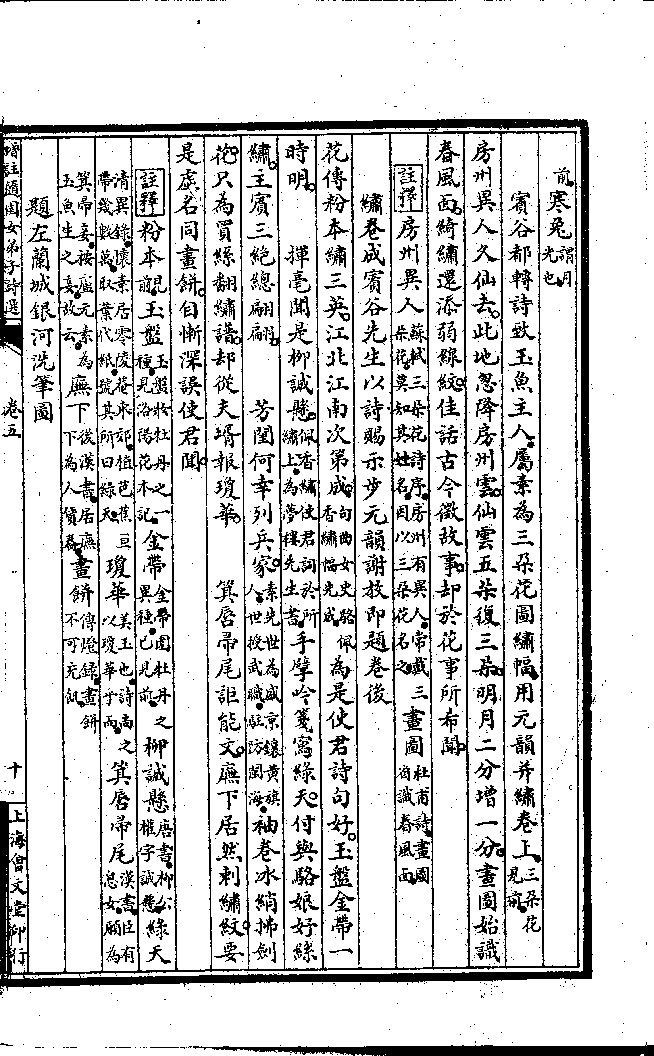 前寒兔謂月光也
賓谷都轉詩致玉魚主人屬素為三朵花圖繡幅用元韻并繡卷上三朵花見前
房州異人久仙去此地忽降房州雲仙雲五朵復三朵明月二分增一分畫圖始識
春風面綺繡還添弱線紋佳話古今徵故事却於花事所希聞
註釋房州異人蘇軾三朵花詩序房州有異人常戴三朵花莫知其姓名因以三朵花名之畫圖杜甫詩畫圖省識春風面
繡卷成賓谷先生以詩賜示步元韻謝教即題卷後
花傳粉本繡三英江北江南次第成句曲女史駱佩香繡幅先成為是使君詩句好玉盤金帶一
時明揮毫聞是柳誠懸佩香繡使君詞於所繡上為夢樓先生書手擘吟箋寫綠天付與駱娘好絲
繡主賓三絕總翩翩芳閨何幸列兵家素先世為盛京鑲黃旗人世授武職駐防閩海袖卷冰綃拂劍
花只為買絲翻繡譜却從夫壻報瓊華箕帚尾詎能文廡下居然刺繡紋要
是虛名同畫餅自慚深誤使君聞
註釋粉本見前玉盤玉盤妝牡丹之一種見洛陽花木記金帶金帶圍牡丹之異種已見前柳誠懸唐書柳公權字誠懸綠天
清異錄懷素居零陵菴東郊植芭蕉亘帶幾數萬取葉代紙號其所曰綠天瓊華美玉也詩尚之以瓊華乎而箕帚尾漢書臣有息女願為
箕帚妾按盧元素為五魚生之妾故云廡下後漢書居廡下為人賃舂畫餅傳燈錄畫餅不可充飢
題左蘭城銀河洗筆圖
增註隨園女弟子詩選
卷五
十
上海會文堂印行